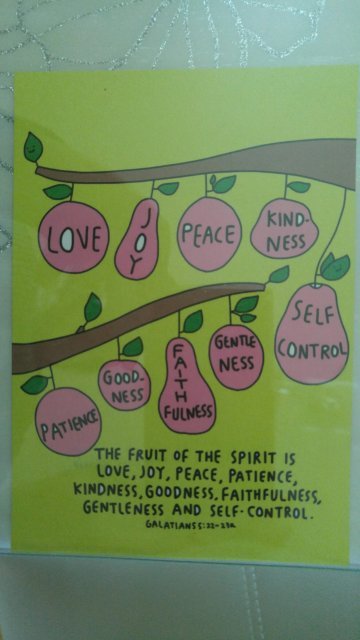 LOVE
JOY
PEACE
KIND-
NESS
SELF
CONTROL
PATIENCE
GOOD-
NESS
FAITH
FULNESS
GENTLE
NESS
THE FRUIT OF THE SPIRIT IS
LOVE, JOY, PEACE, PATIENCE,
KINDNESS, GOODNESS, FAITHFULNESS,
GENTLENESS AND SELF-CONTROL.
GALATIANS 5:22-23A